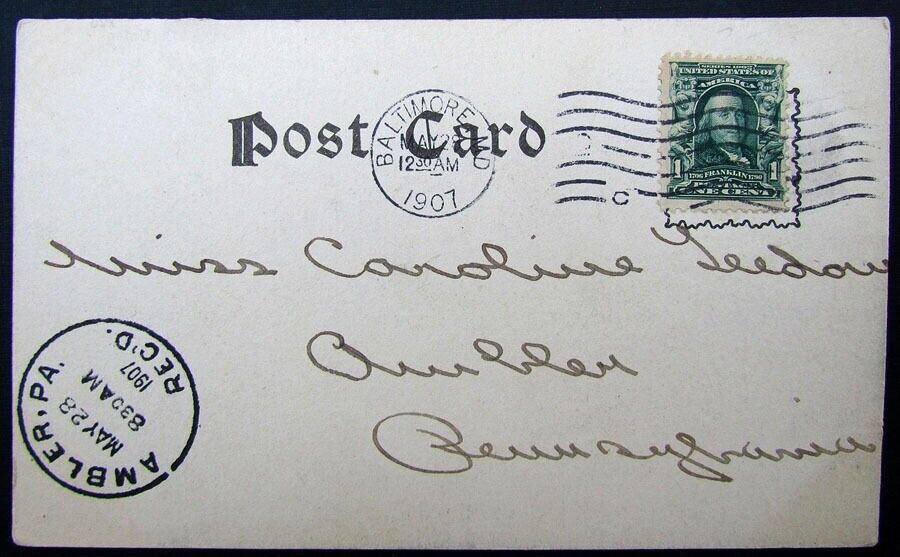 Post Card
BALTIMORE, MD
MAY 28
12 30 AM
1907
C
SERIES 1902
UNITED STATES OF
AMERICA
1 1
1706 FRANKLIN 1790
POSTAGE
ONE CENT
Miss Caroline
Ambler
Pennsylvania
AMBLER, PA.
MAY 28
8 30 AM
1907
REC'D.